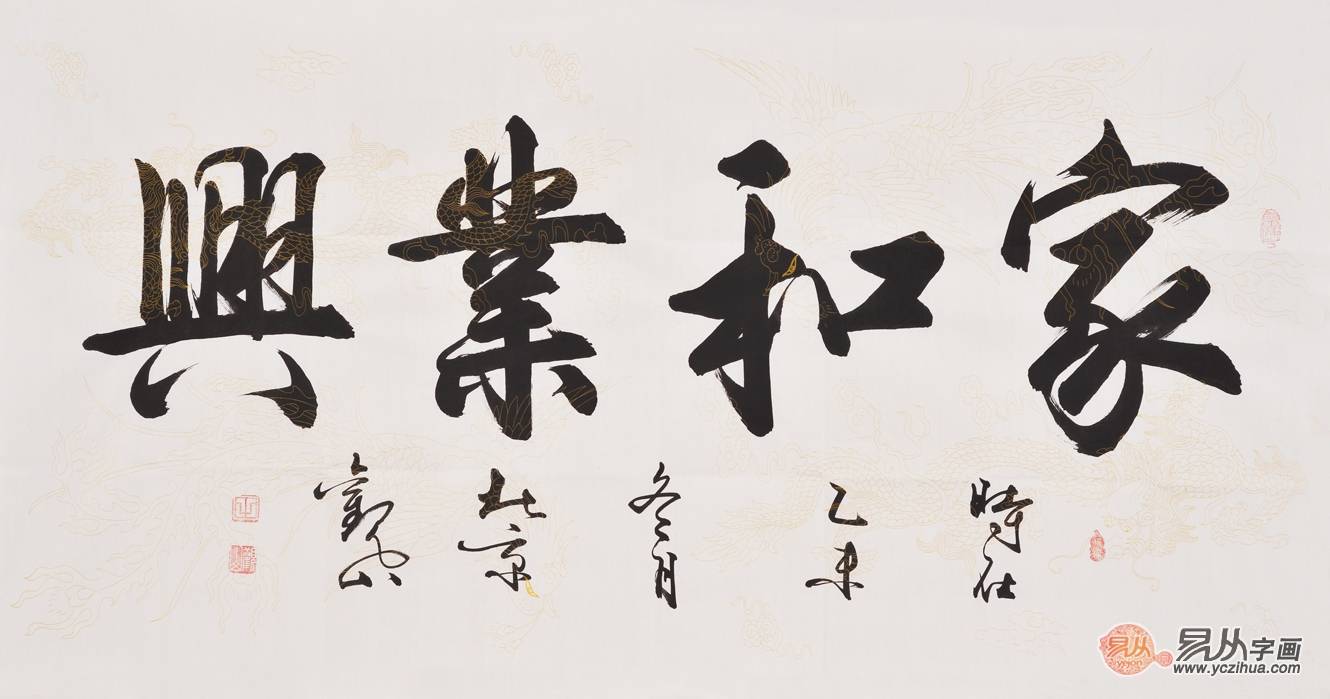 家和業興
時在
乙未
冬月
北京
觀山
易从
yycon
易从字画
www.yczihua.com